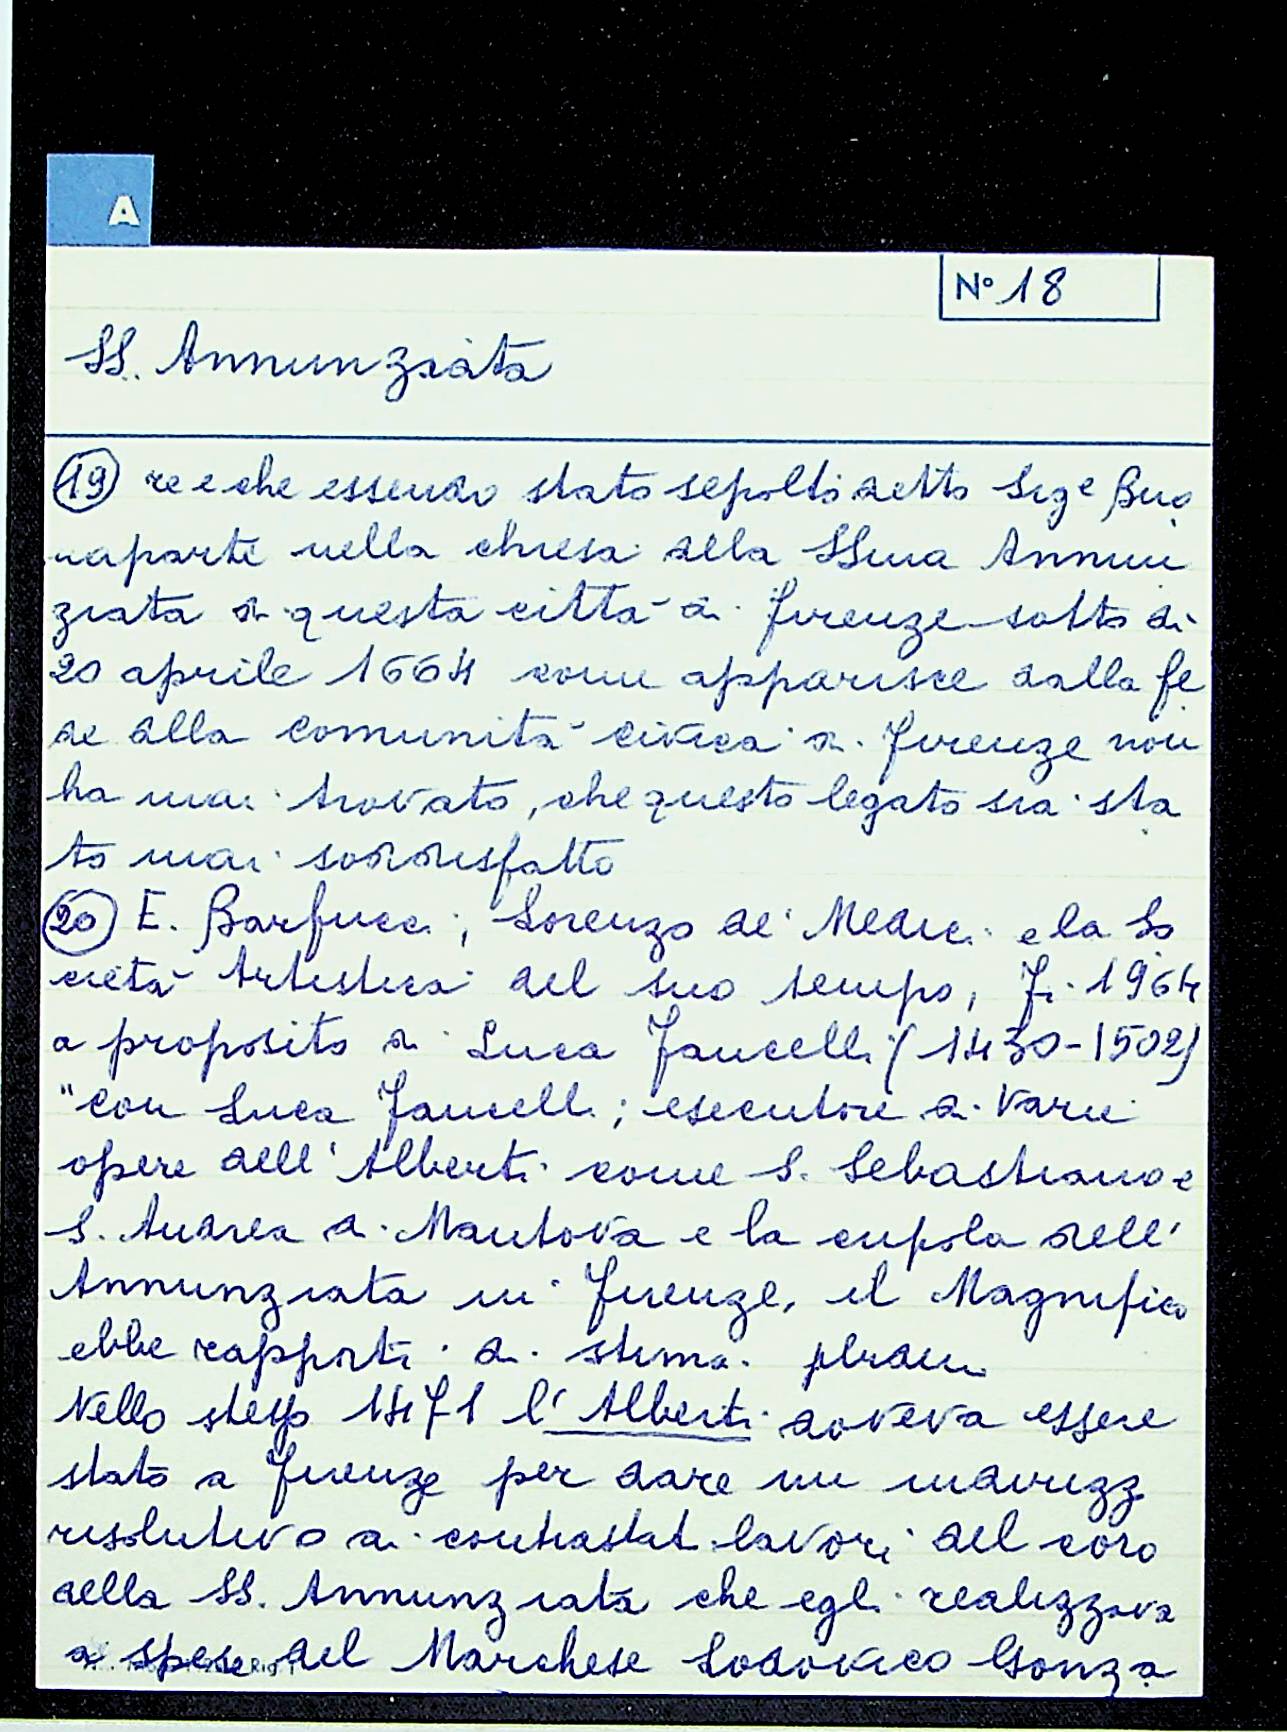 A
N° 18
SS. Annunziata
19 re e che essendo stato sepolto detto Sigᵉ Buo
naparte nella chiesa della SSma Annun
ziata di questa città di Firenze sotto di
20 aprile 1664 come apparisce dalla fe
de alla comunità civica di Firenze non
ha mai trovato, che questo legato sia sta
to mai soddisfatto
20 E. Barfucci, Lorenzo de' Medici e la So
cietà Artistica del suo tempo, Fi. 1964
a proposito di Luca Fancelli (1430-1502)
"con Luca Fancelli; esecutore di varie
opere dell'Alberti come S. Sebastiano e
S. Andrea di Mantova e la cupola dell'
Annunziata in Firenze, il Magnifico
ebbe rapporti di stima.
Nello stesso 1471 l'Alberti doveva essere
stato a Firenze per dare un indirizz
risolutivo ai contrastat lavori del coro
della SS. Annunziata che egli realizzava
a spese del Marchese Lodovico Gonza